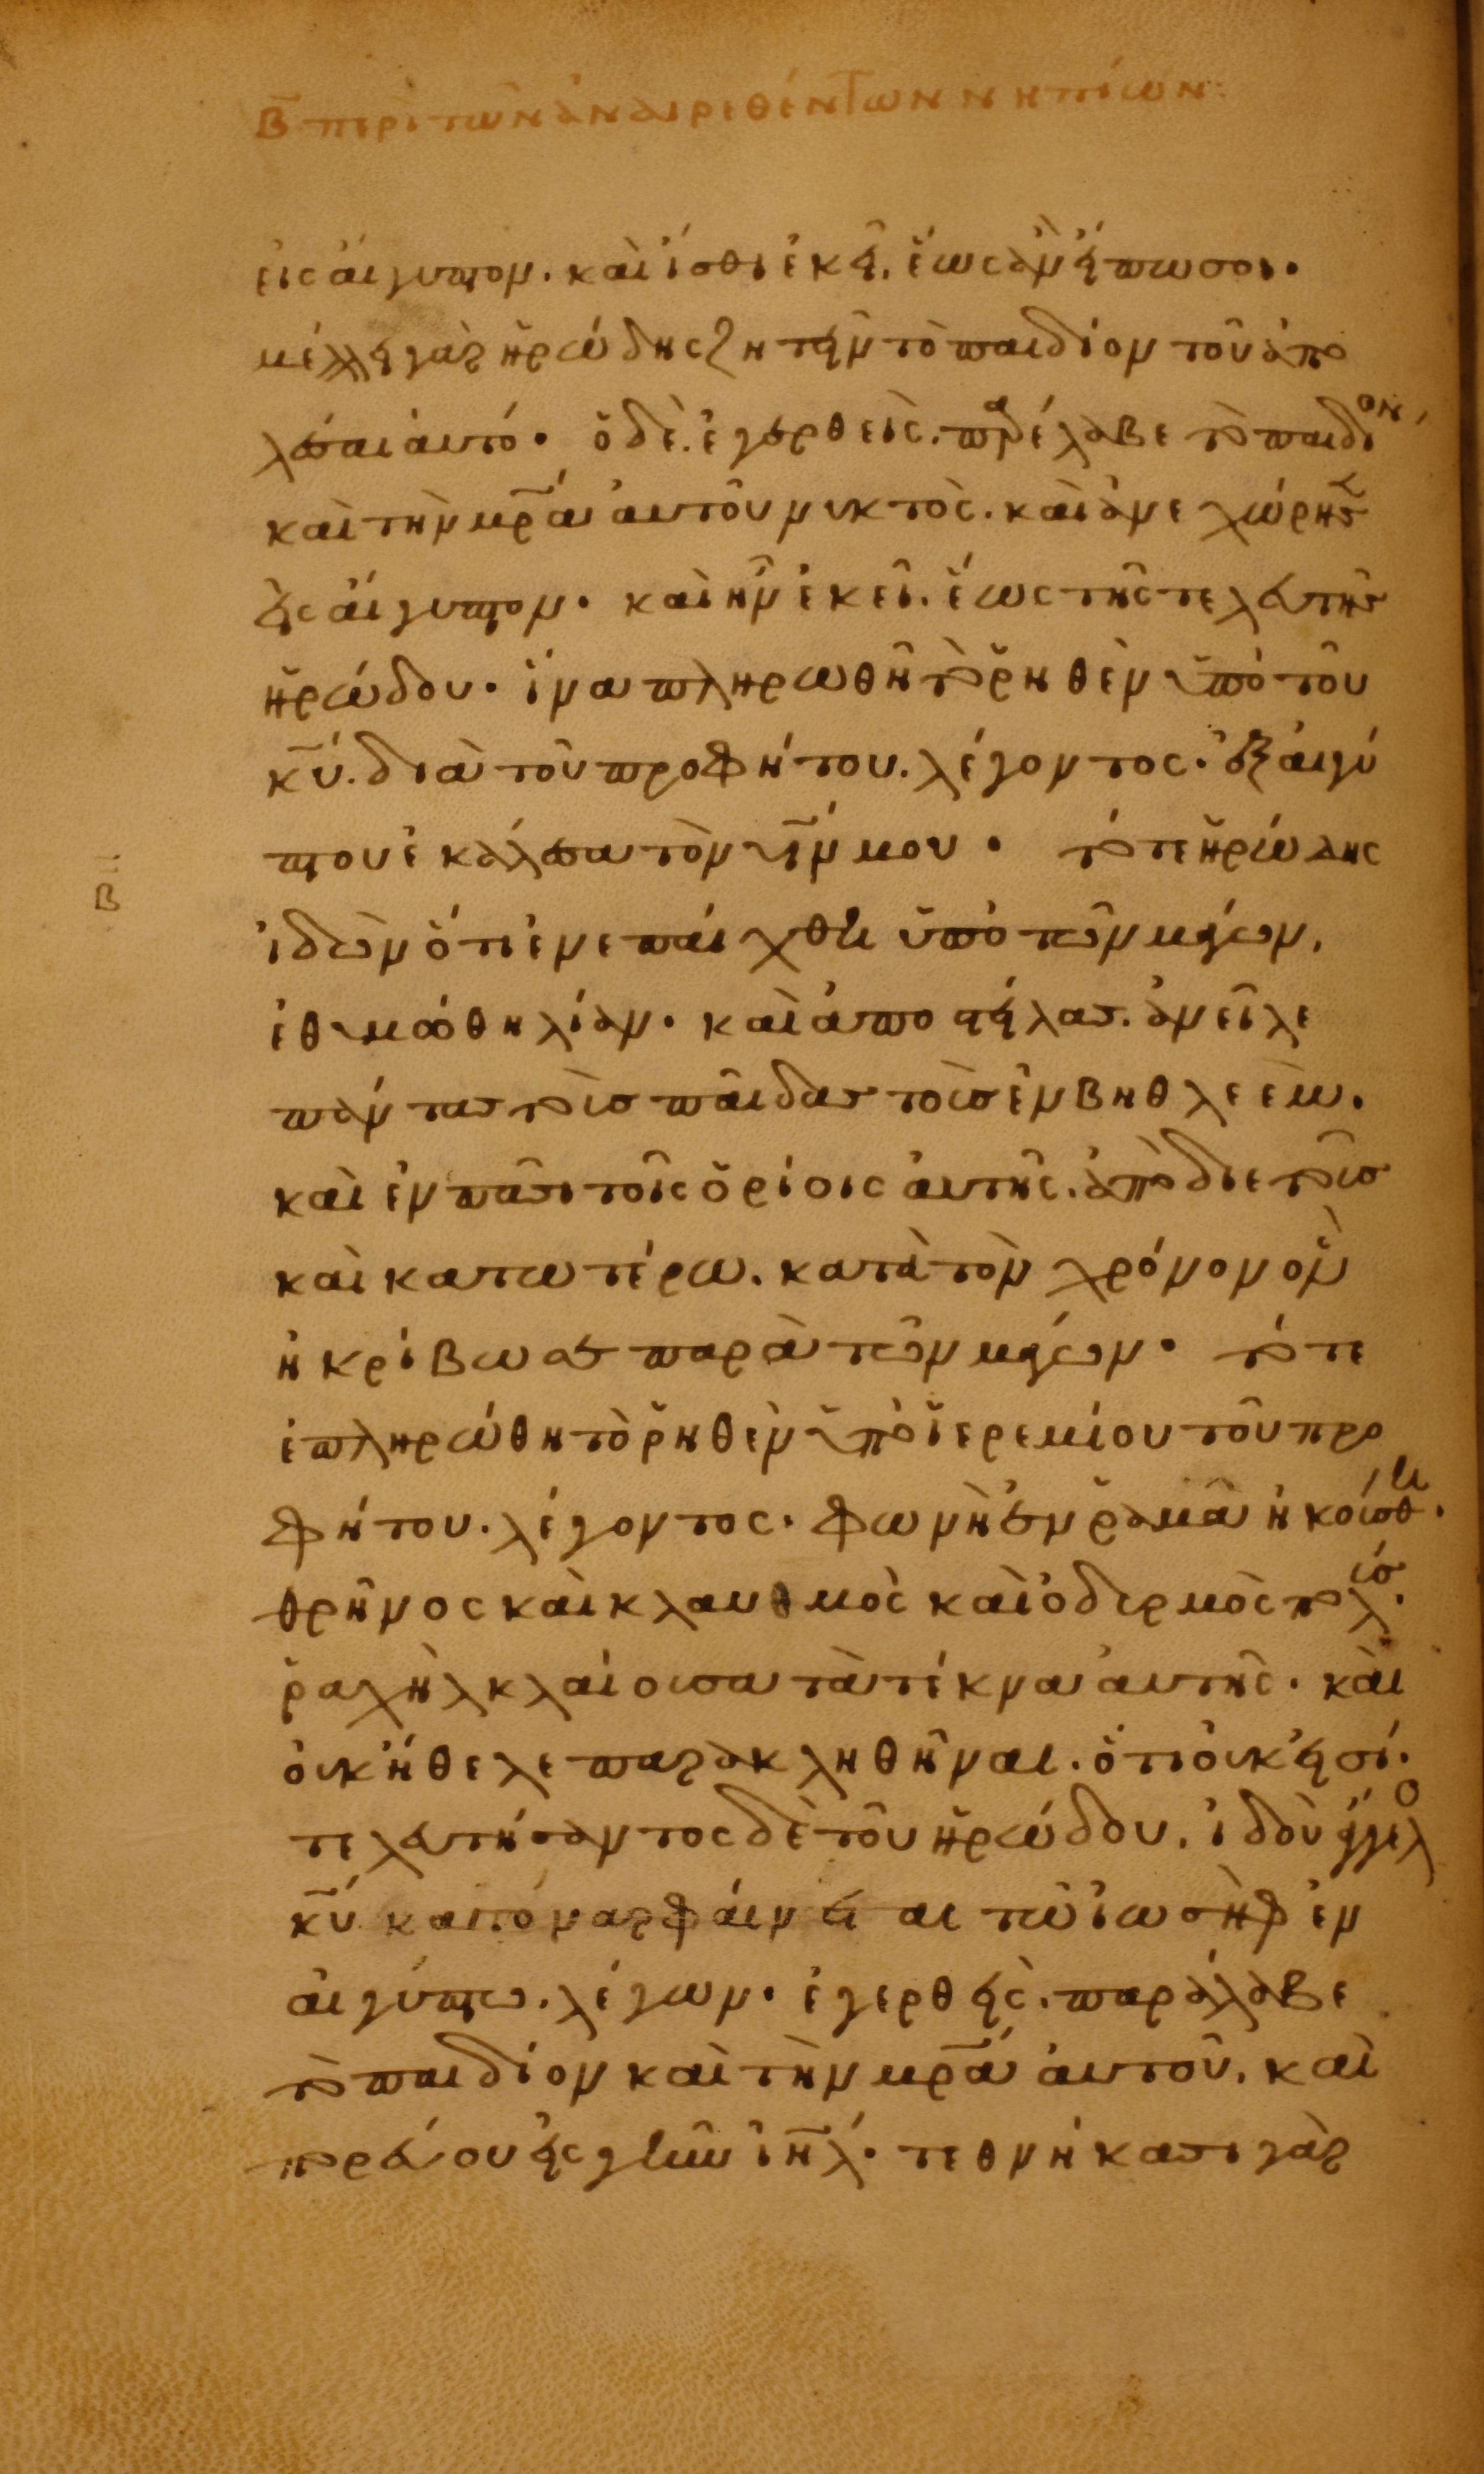 β̅ περὶ τῶν ἀναιρεθέντων νηπίων:
εἰς αἴγυπτον. καὶ ἴσθι ἐκεῖ, ἕως ἂν εἴπω σοι.
μέλλει γὰρ ἡρώδης ζητεῖν τὸ παιδίον τοῦ ἀπο
λέσαι αὐτό. ὁ δὲ. ἐγερθεὶς. παρέλαβε τὸ παιδίον,
καὶ τὴν μρ̅α αὐτοῦ νυκτὸς. καὶ ἀνεχώρησεν
εἰς αἴγυπτον. καὶ ἦν ἐκεῖ. ἕως τῆς τελευτῆς
ἡρώδου. ἵνα πληρωθῆ τὸ ῥηθὲν ὑπὸ τοῦ
κ̅υ. διὰ τοῦ προφήτου. λέγοντος. ἐξ αἰγύ
πτου ἐκάλεσα τὸν υ̅ν μου. τότε ἡρώδης
β
ἰδὼν ὅτι ἐνεπαίχθη ὑπὸ τῶν μάγων,
ἐθυμώθη λίαν. καὶ ἀποστείλας. ἀνεῖλε
πάντας τοὺς παῖδας τοὺς ἐν βηθλεὲμ.
καὶ ἐν πᾶσι τοῖς ὁρίοις αὐτῆς. ἀπὸ διετοῦς
καὶ κατωτέρω. κατὰ τὸν χρόνον ὃν
ἠκρίβωσε παρὰ τῶν μάγων. τότε
ἐπληρώθη τὸ ῥηθὲν ὑπὸ ἱερεμίου τοῦ προ
φήτου. λέγοντος. φωνὴ ἐν ῥαμᾶ ἠκούσθη.
θρῆνος καὶ κλαυθμὸς καὶ ὀδυρμὸς πολύς.
ῥαχὴλ κλαίουσα τὰ τέκνα αὐτῆς. καὶ
οὐκ ἤθελε παρακληθῆναι. ὅτι οὐκ εἰσί.
τελευτήσαντος δὲ τοῦ ἡρώδου. ἰδοὺ ἄγγελο
κ̅υ κατ' ὄναρ φαίνεται τῶ ἰωσὴφ ἐν
αἰγύπτω. λέγων. ἐγερθεὶς. παράλαβε
τὸ παιδίον καὶ τὴν μρ̅α αὐτοῦ. καὶ
πορεύου εἰς γῆν ἰη̅λ. τεθνήκασι γὰρ